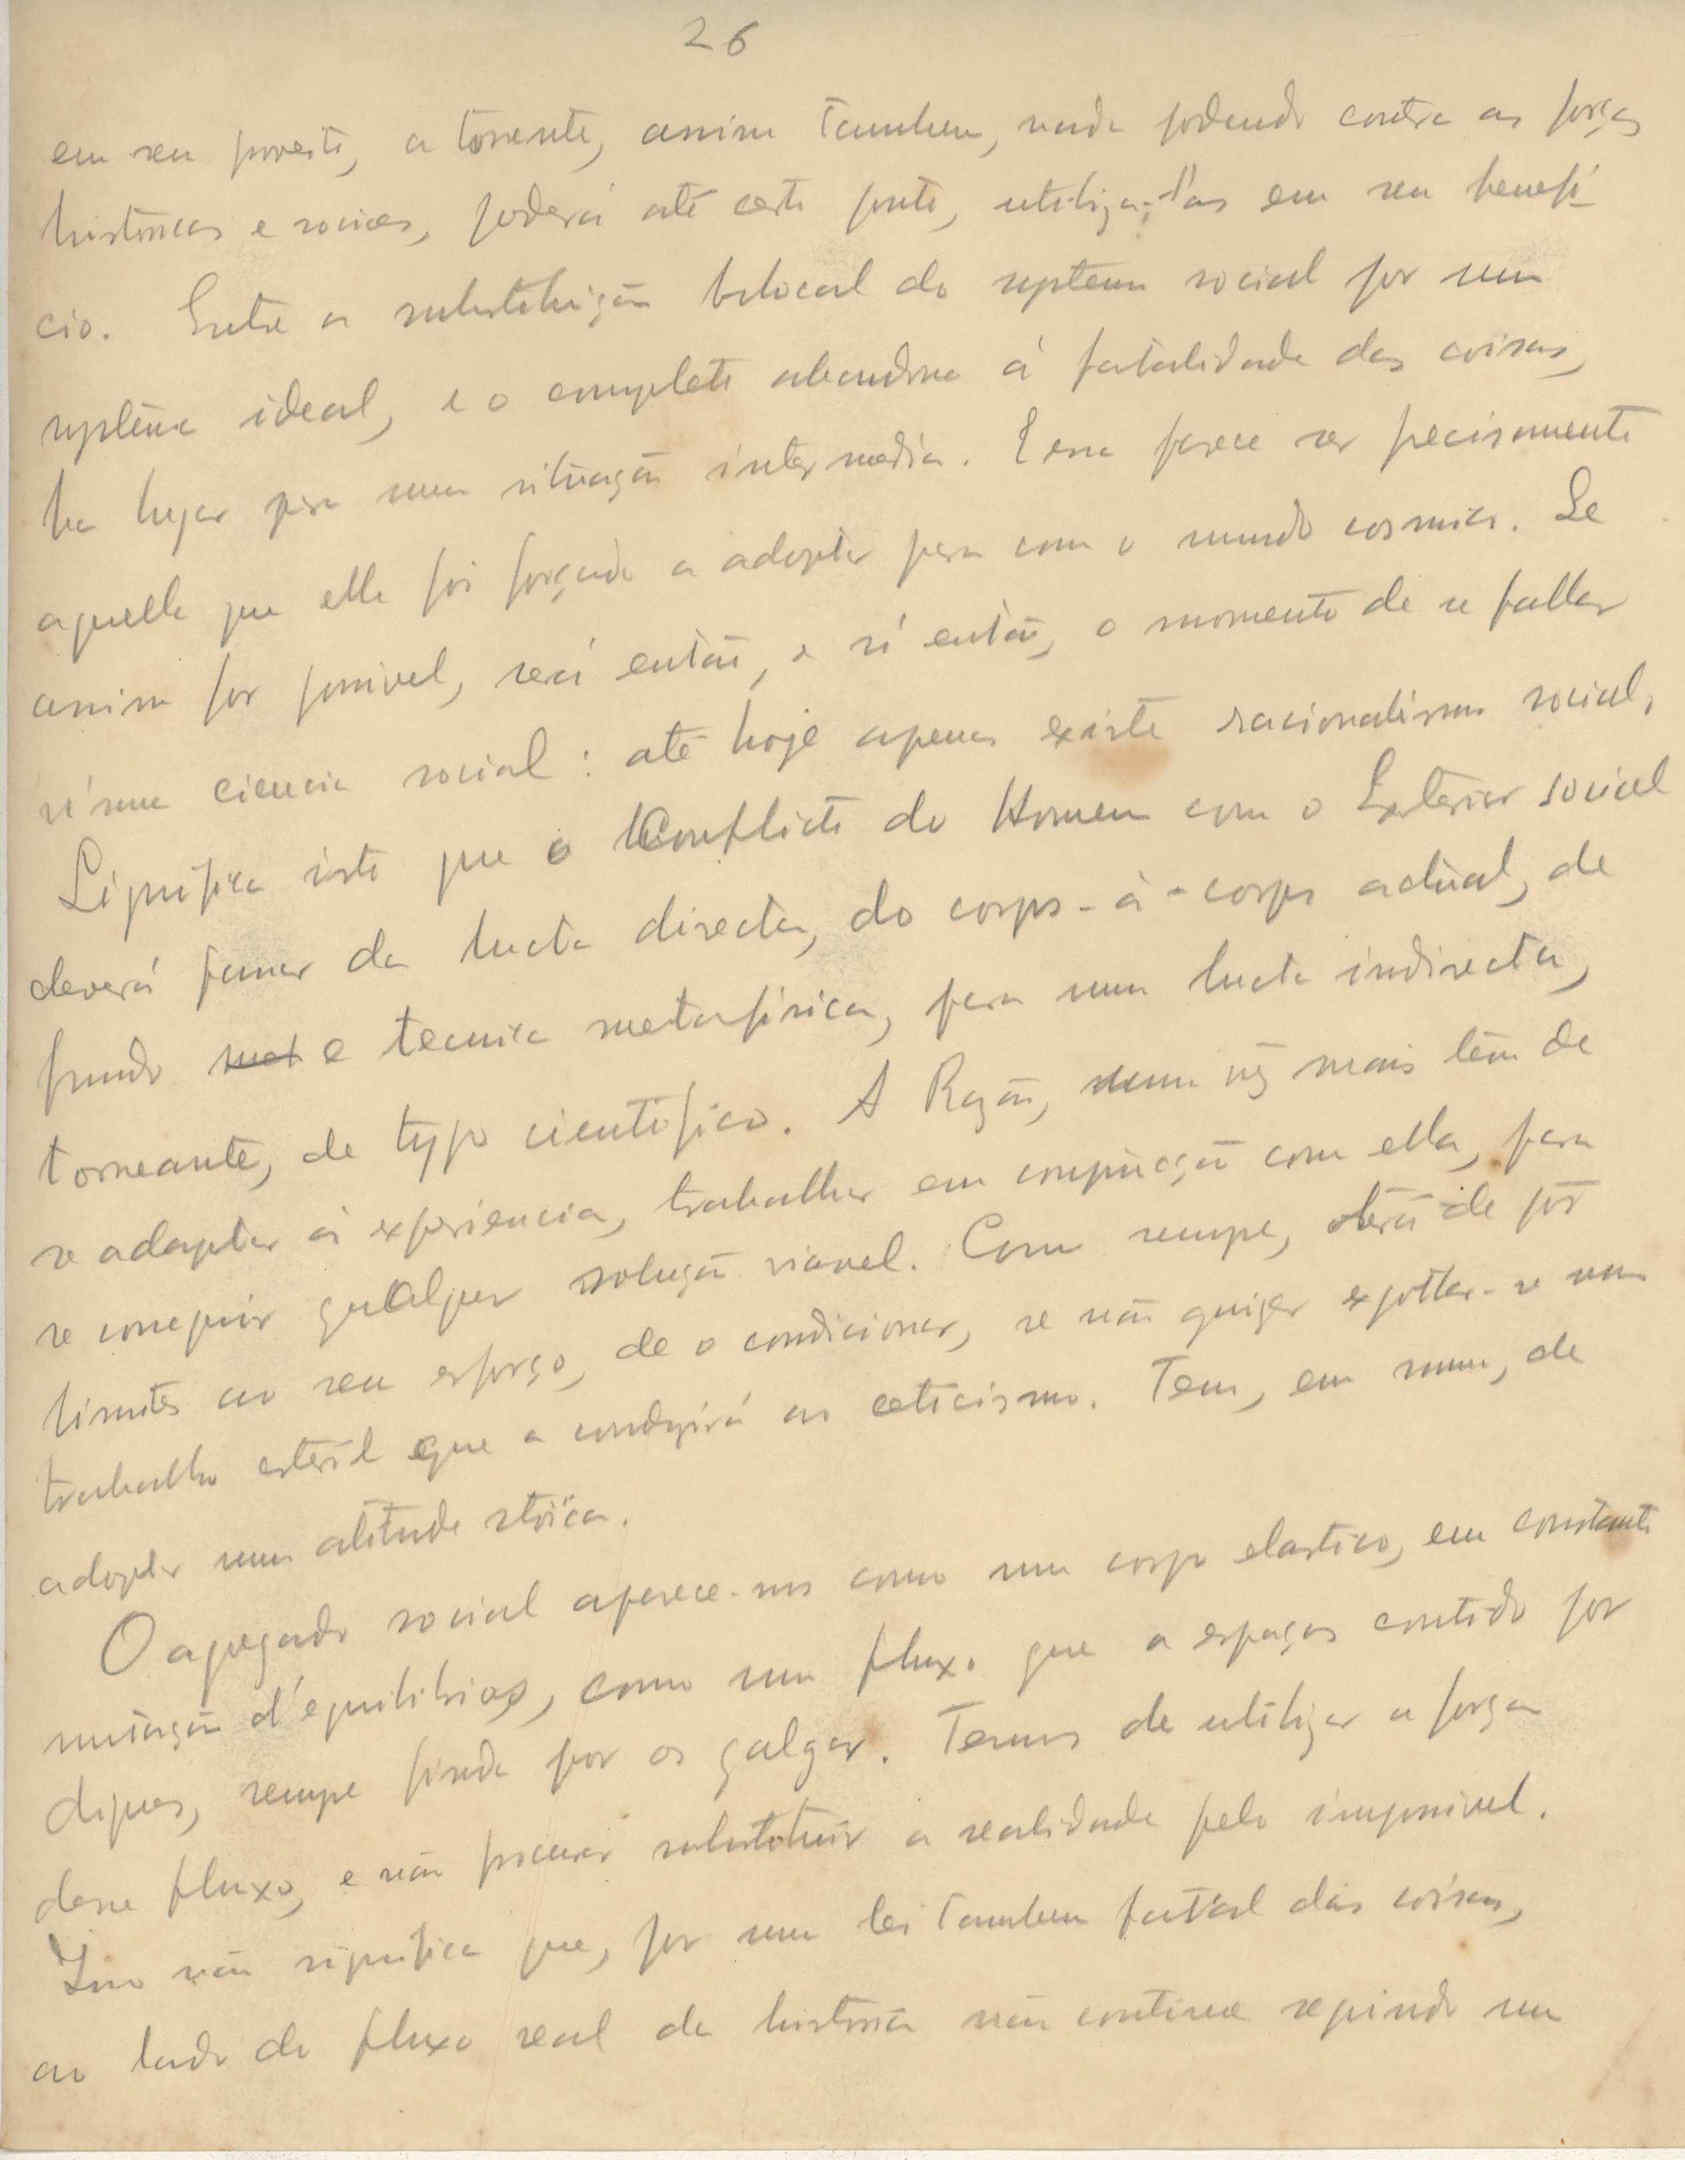 26
em seu proveito, a torrente, assim tambem, nada podendo contra as forças
historicas e sociaes, poderá até certo ponto, utiliza-l'as em seu benefi-
cio. Entre a substituição total do systema social por um
systema ideal, e o completo abandono á fatalidade das coisas,
ha lugar para uma situação intermedia. Essa parece ser precisamente
aquella que elle foi forçado a adoptar para com o mundo cosmico. Se
assim for possivel, será então, e só então, o momento de se fallar
n'uma ciencia social: até hoje apenas existe racionalismo social.
Significa isto que o Conflicto do Homem com o Exterior social
deverá passar da lucta directa, do corpo-à-corpo actual, de
fundo e tecnica metafisica, para uma lucta indirecta,
torneante, de typo cientifico. A Razão, uma vez mais tem de
se adaptar á experiencia, trabalhar em conjugação com ella, para
se conseguir qualquer solução viavel. Como sempre, terá de pôr
limites ao seu esforço, de o condicionar, se não quizer exgottar-se num
trabalho esteril que a conduzirá ao ceticismo. Tem, em summa, de
adoptar uma atitude stoïca.
O agregado social aparece-nos como um corpo elastico, em constante
mutação d'equilibrios, como um fluxo que a espaços contido por
diques, sempre finda por os galgar. Temos de utilizar a força
desse fluxo, e não procurar substituir a realidade pelo impossivel.
Isso não significa que, por uma lei tambem fatal das coisas,
ao lado do fluxo real da historia não continue seguindo um